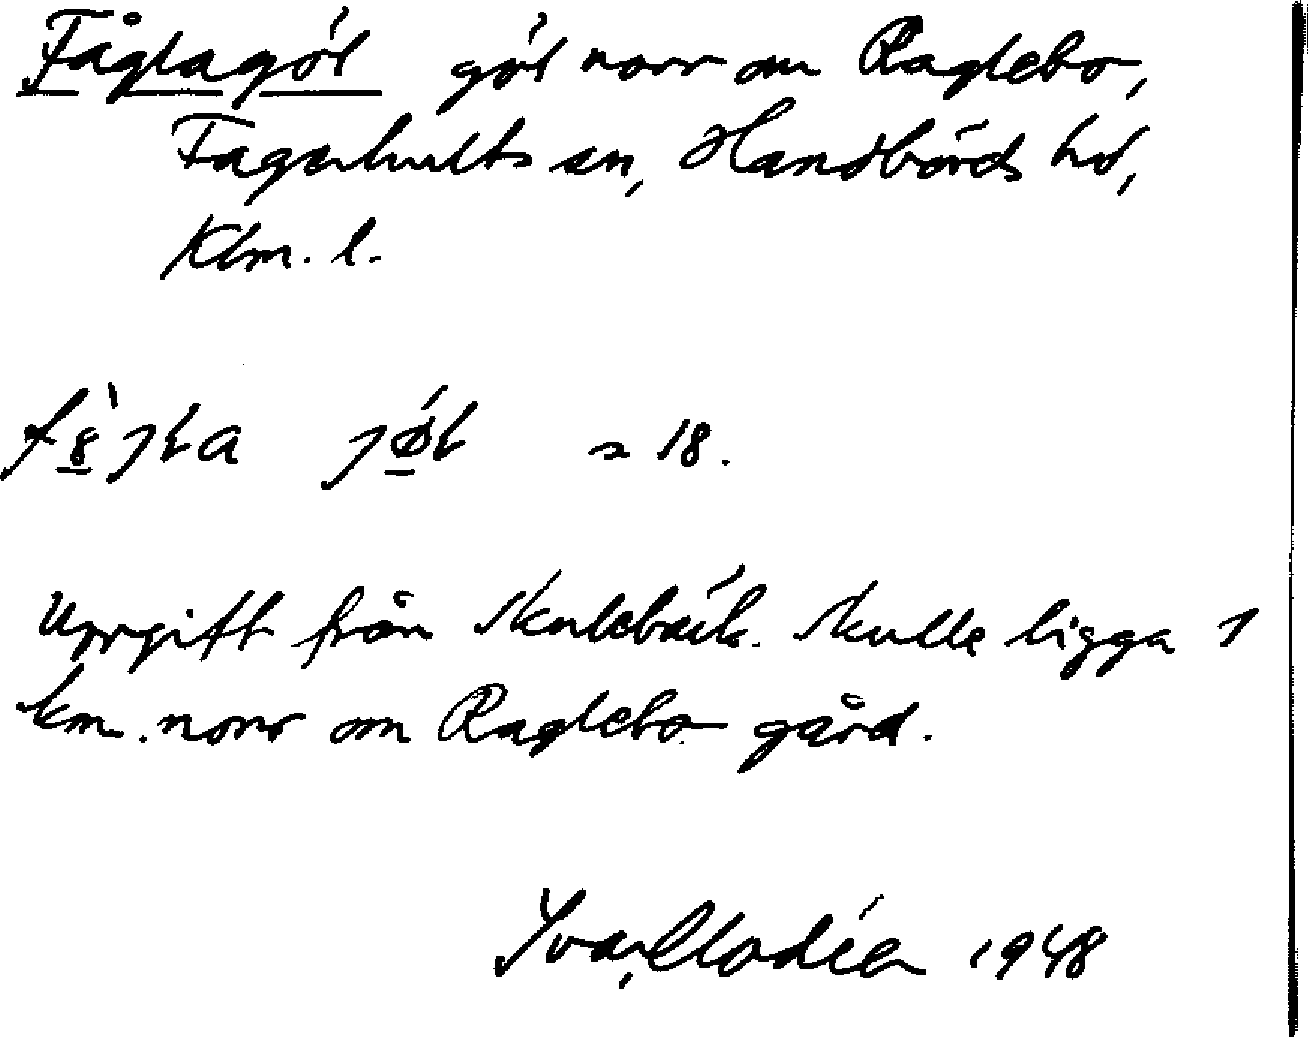 Fåglagöl göl norr om Raglebo,
Fagerhults sn, Handbörds hd,
Klm. l.
jøl 18.
Uppgift från Skulebäck. Skulle ligga 1
km. norr om Raglebo gård.
Ivar Modéer 1948